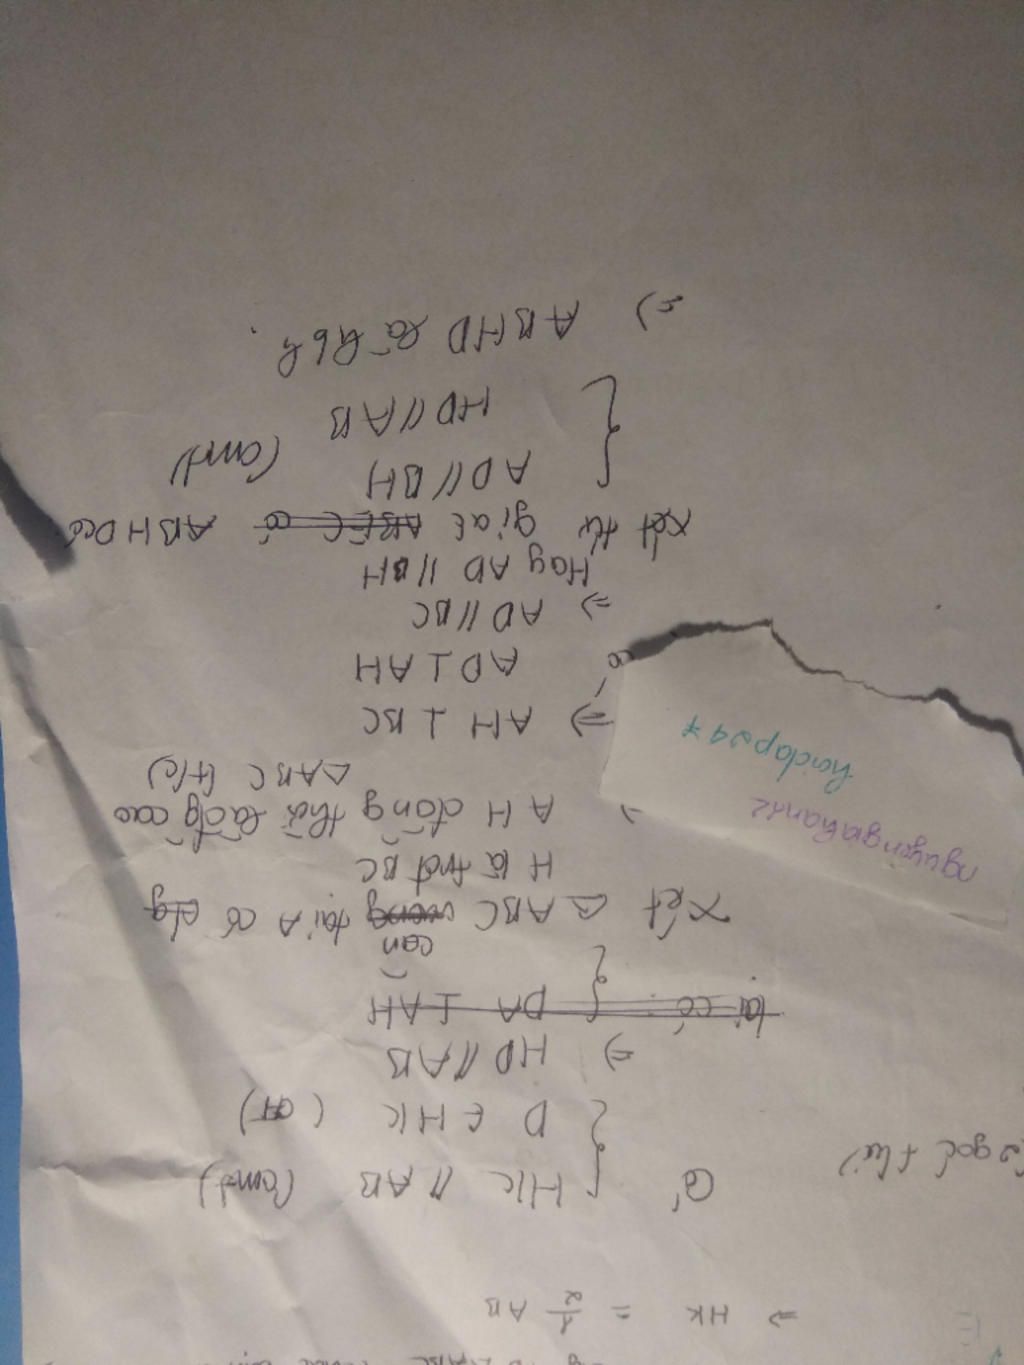 ⇒ HK = 1/2 AB
(2 góc
Có { HK // AB (cmt)
D ∈ HK (GT)
⇒ HD // AB
lại có { DA ⊥ AH
cân
Xét △ABC vuông tại A có đg
H là trđ BC
⇒ AH đồng thời là đg cao
△ABC (t/c)
⇒ AH ⊥ BC
AD ⊥ AH
⇒ AD // BC
Hay AD // BH
Xét tứ giác ABEC có ABHD có
{ AD // BH
(cmt)
HD // AB
⇒ ABHD là hbh.
nguyengiahan12
hoidap247